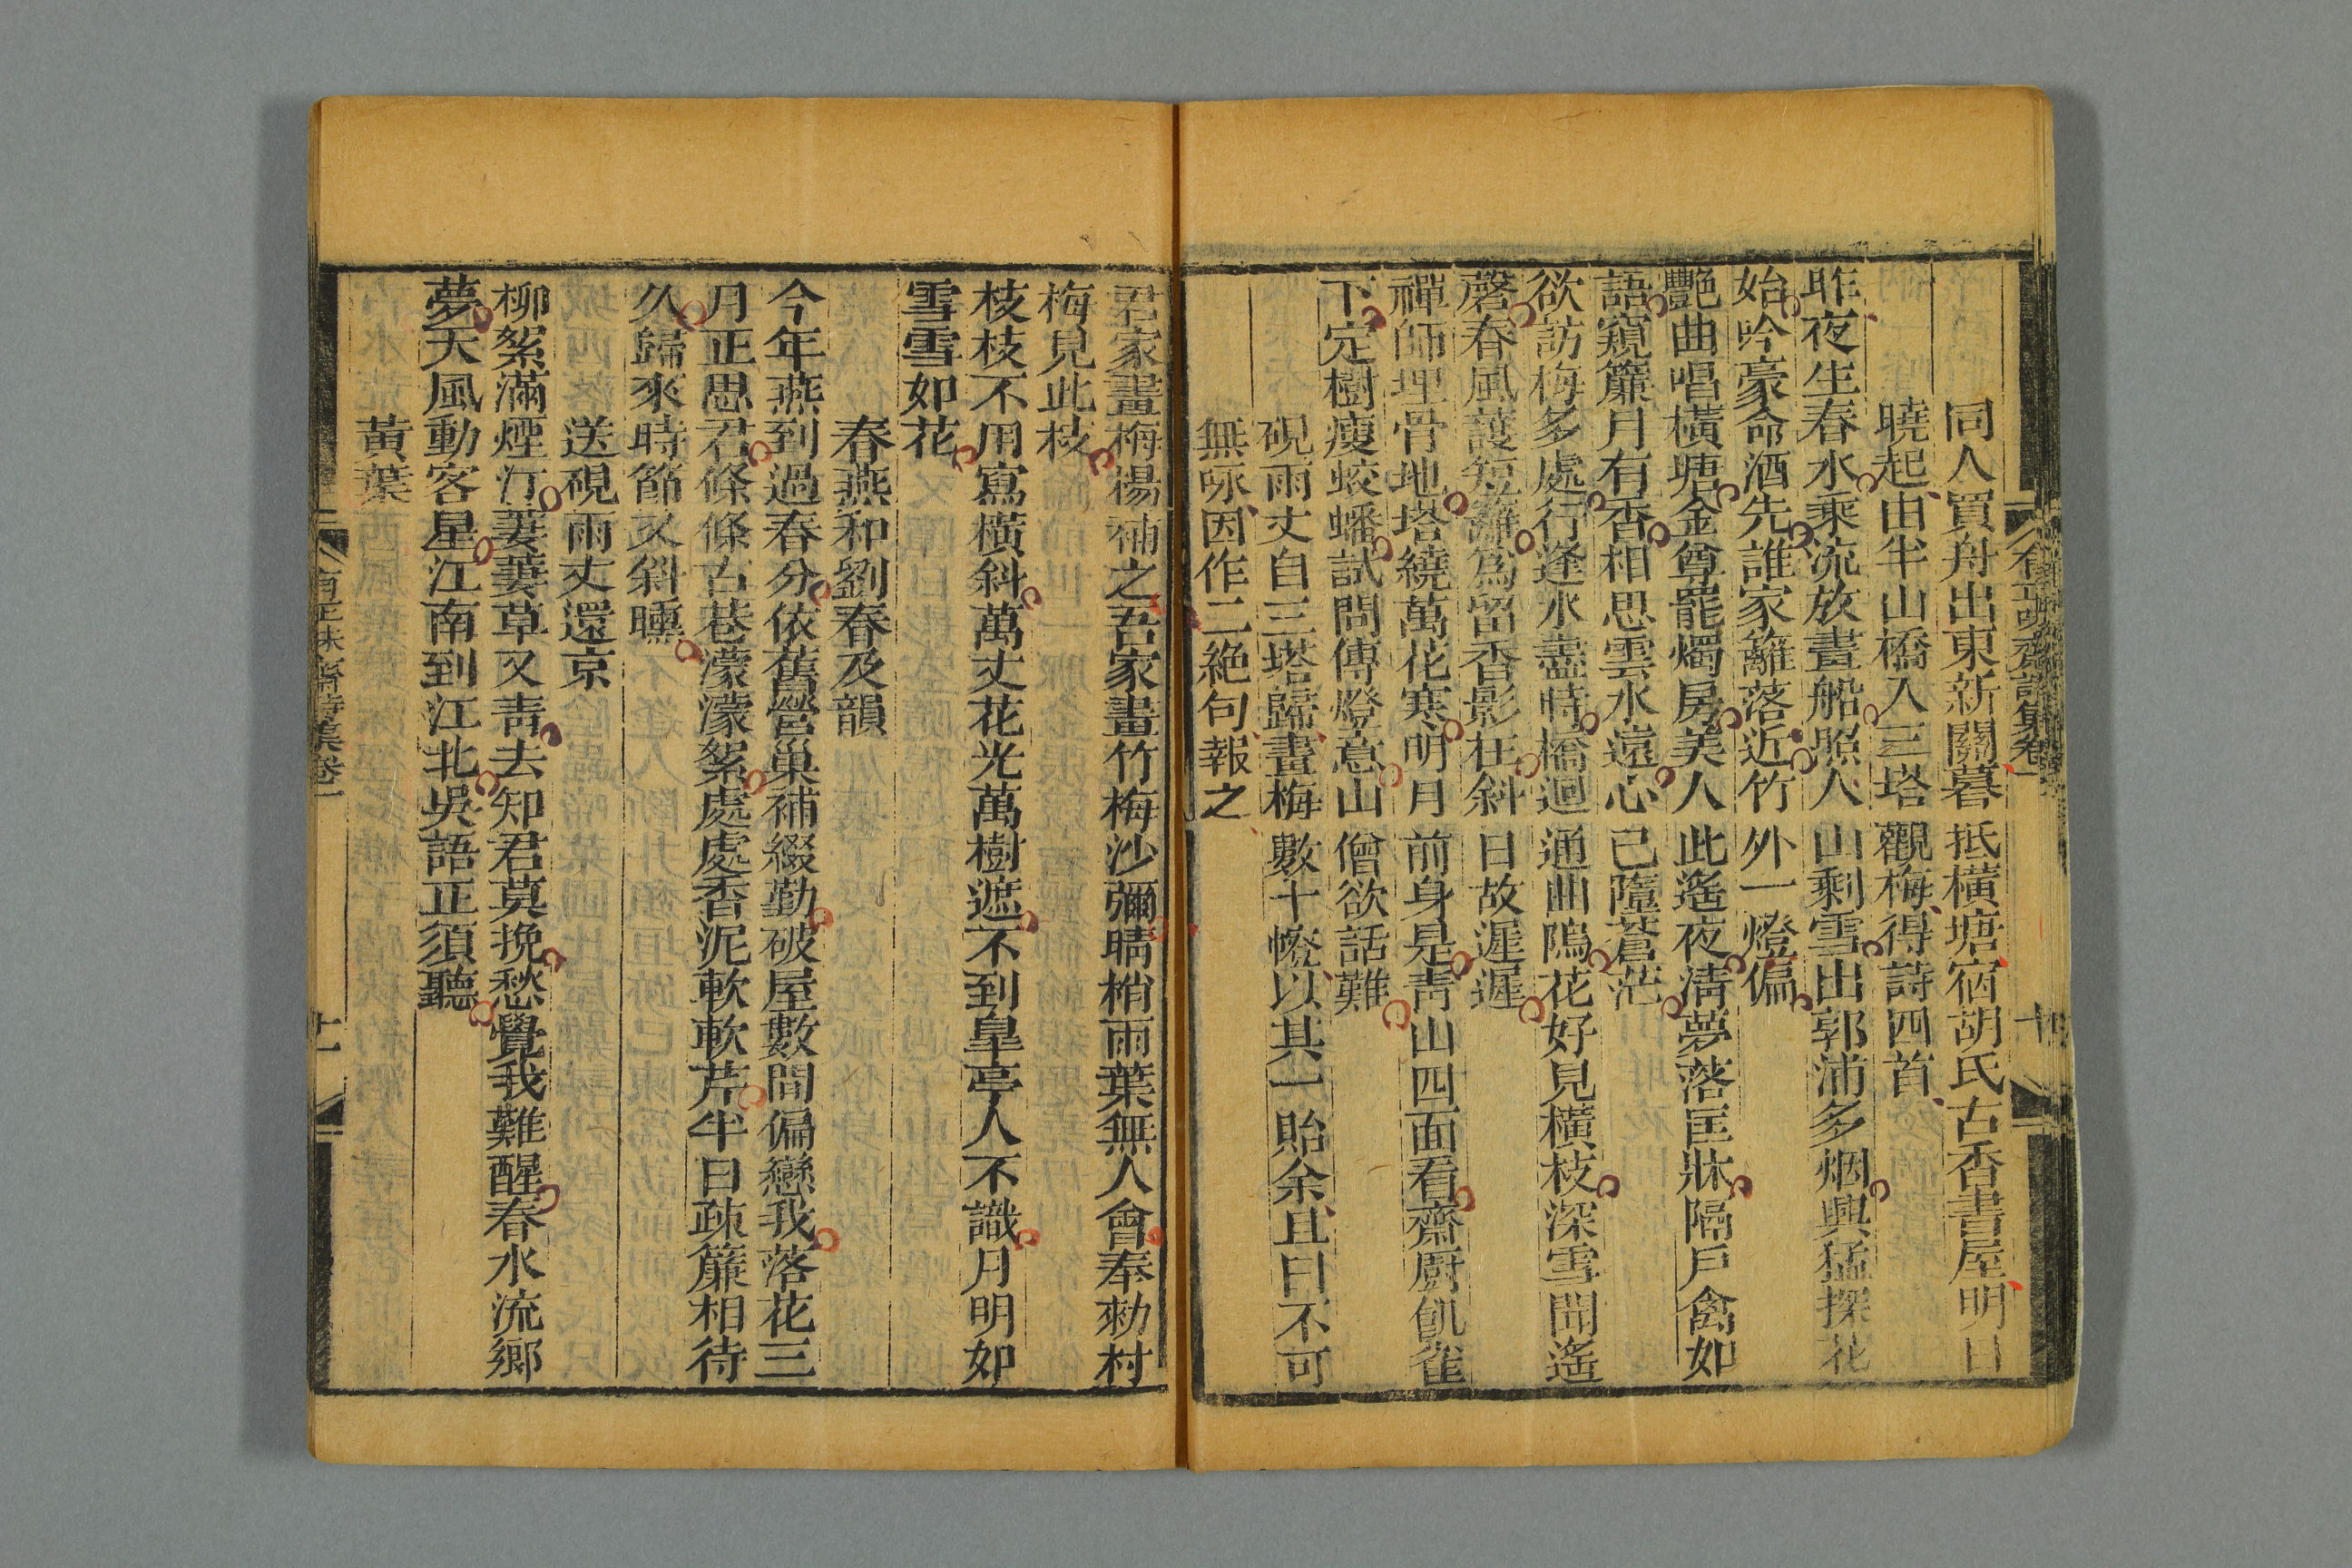 同人買舟出東新關暮抵橫塘宿胡氏古香書屋明日
曉起由半山橋入三塔觀梅得詩四首
昨夜生春水乘流放畫船照人山剩雪出郭浦多烟興猛探花
始吟豪命酒先誰家籬落近竹外一燈偏
艷曲唱橫塘金尊罷燭房美人此遙夜淸夢落匡牀隔戶禽如
語窺簾月有香相思雲水遠心已墮蒼茫
欲訪梅多處行逢水盡時橋迴通曲隖花好見橫枝深雪聞遙
磬春風護短籬爲留香影在斜日故遲遲
禪師埋骨地塔繞萬花寒明月前身是靑山四面看齋厨飢雀
下定樹瘦蛟蟠試問傳燈意山僧欲話難
硯雨丈自三塔歸畫梅數十幢以其一貽余且曰不可
無啄因作二絶句報之
君家畫梅楊補之吾家畫竹梅沙彌晴梢雨葉無人會奉勑村
梅見此枝
枝枝不用寫橫斜萬丈花光萬樹遮不到皐亭人不識月明如
雪雪如花
春燕和劉春及韻
今年燕到過春分依舊營巢補綴勤破屋數間偏戀我落花三
月正思君條條古巷濛濛絮處處香泥軟軟芹半日疎簾相待
久歸來時節又斜曛
送硯雨丈還京
柳絮滿煙汀萋萋草又靑去知君莫挽愁覺我難醒春水流鄉
夢天風動客星江南到江北吳語正須聽
黃葉
有正味齋詩集卷一
十一